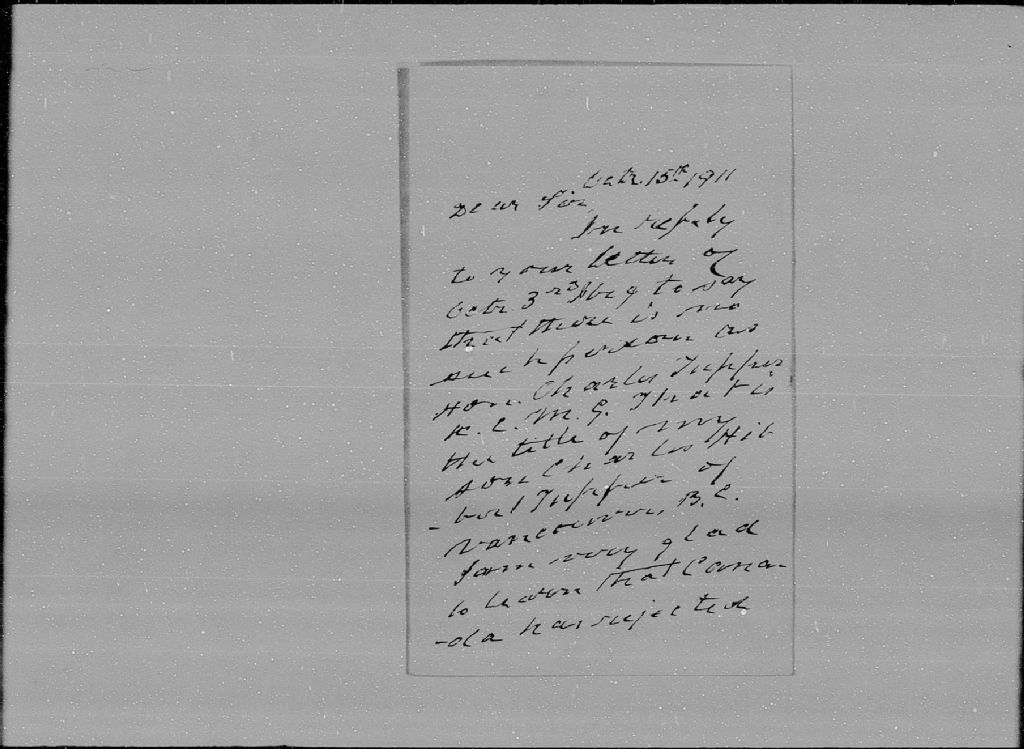 Octr. 15th 1911
Dear Sir,
In reply
to your letter of
Octr 3rd I beg to say
that there is no
such person as
Hon. Charles Tupper
K. C. M. G. That is
the title of my
son Charles Hib
-bert Tupper of
Vancouver, B. C.
I am very glad
to learn that Cana-
-da has rejected